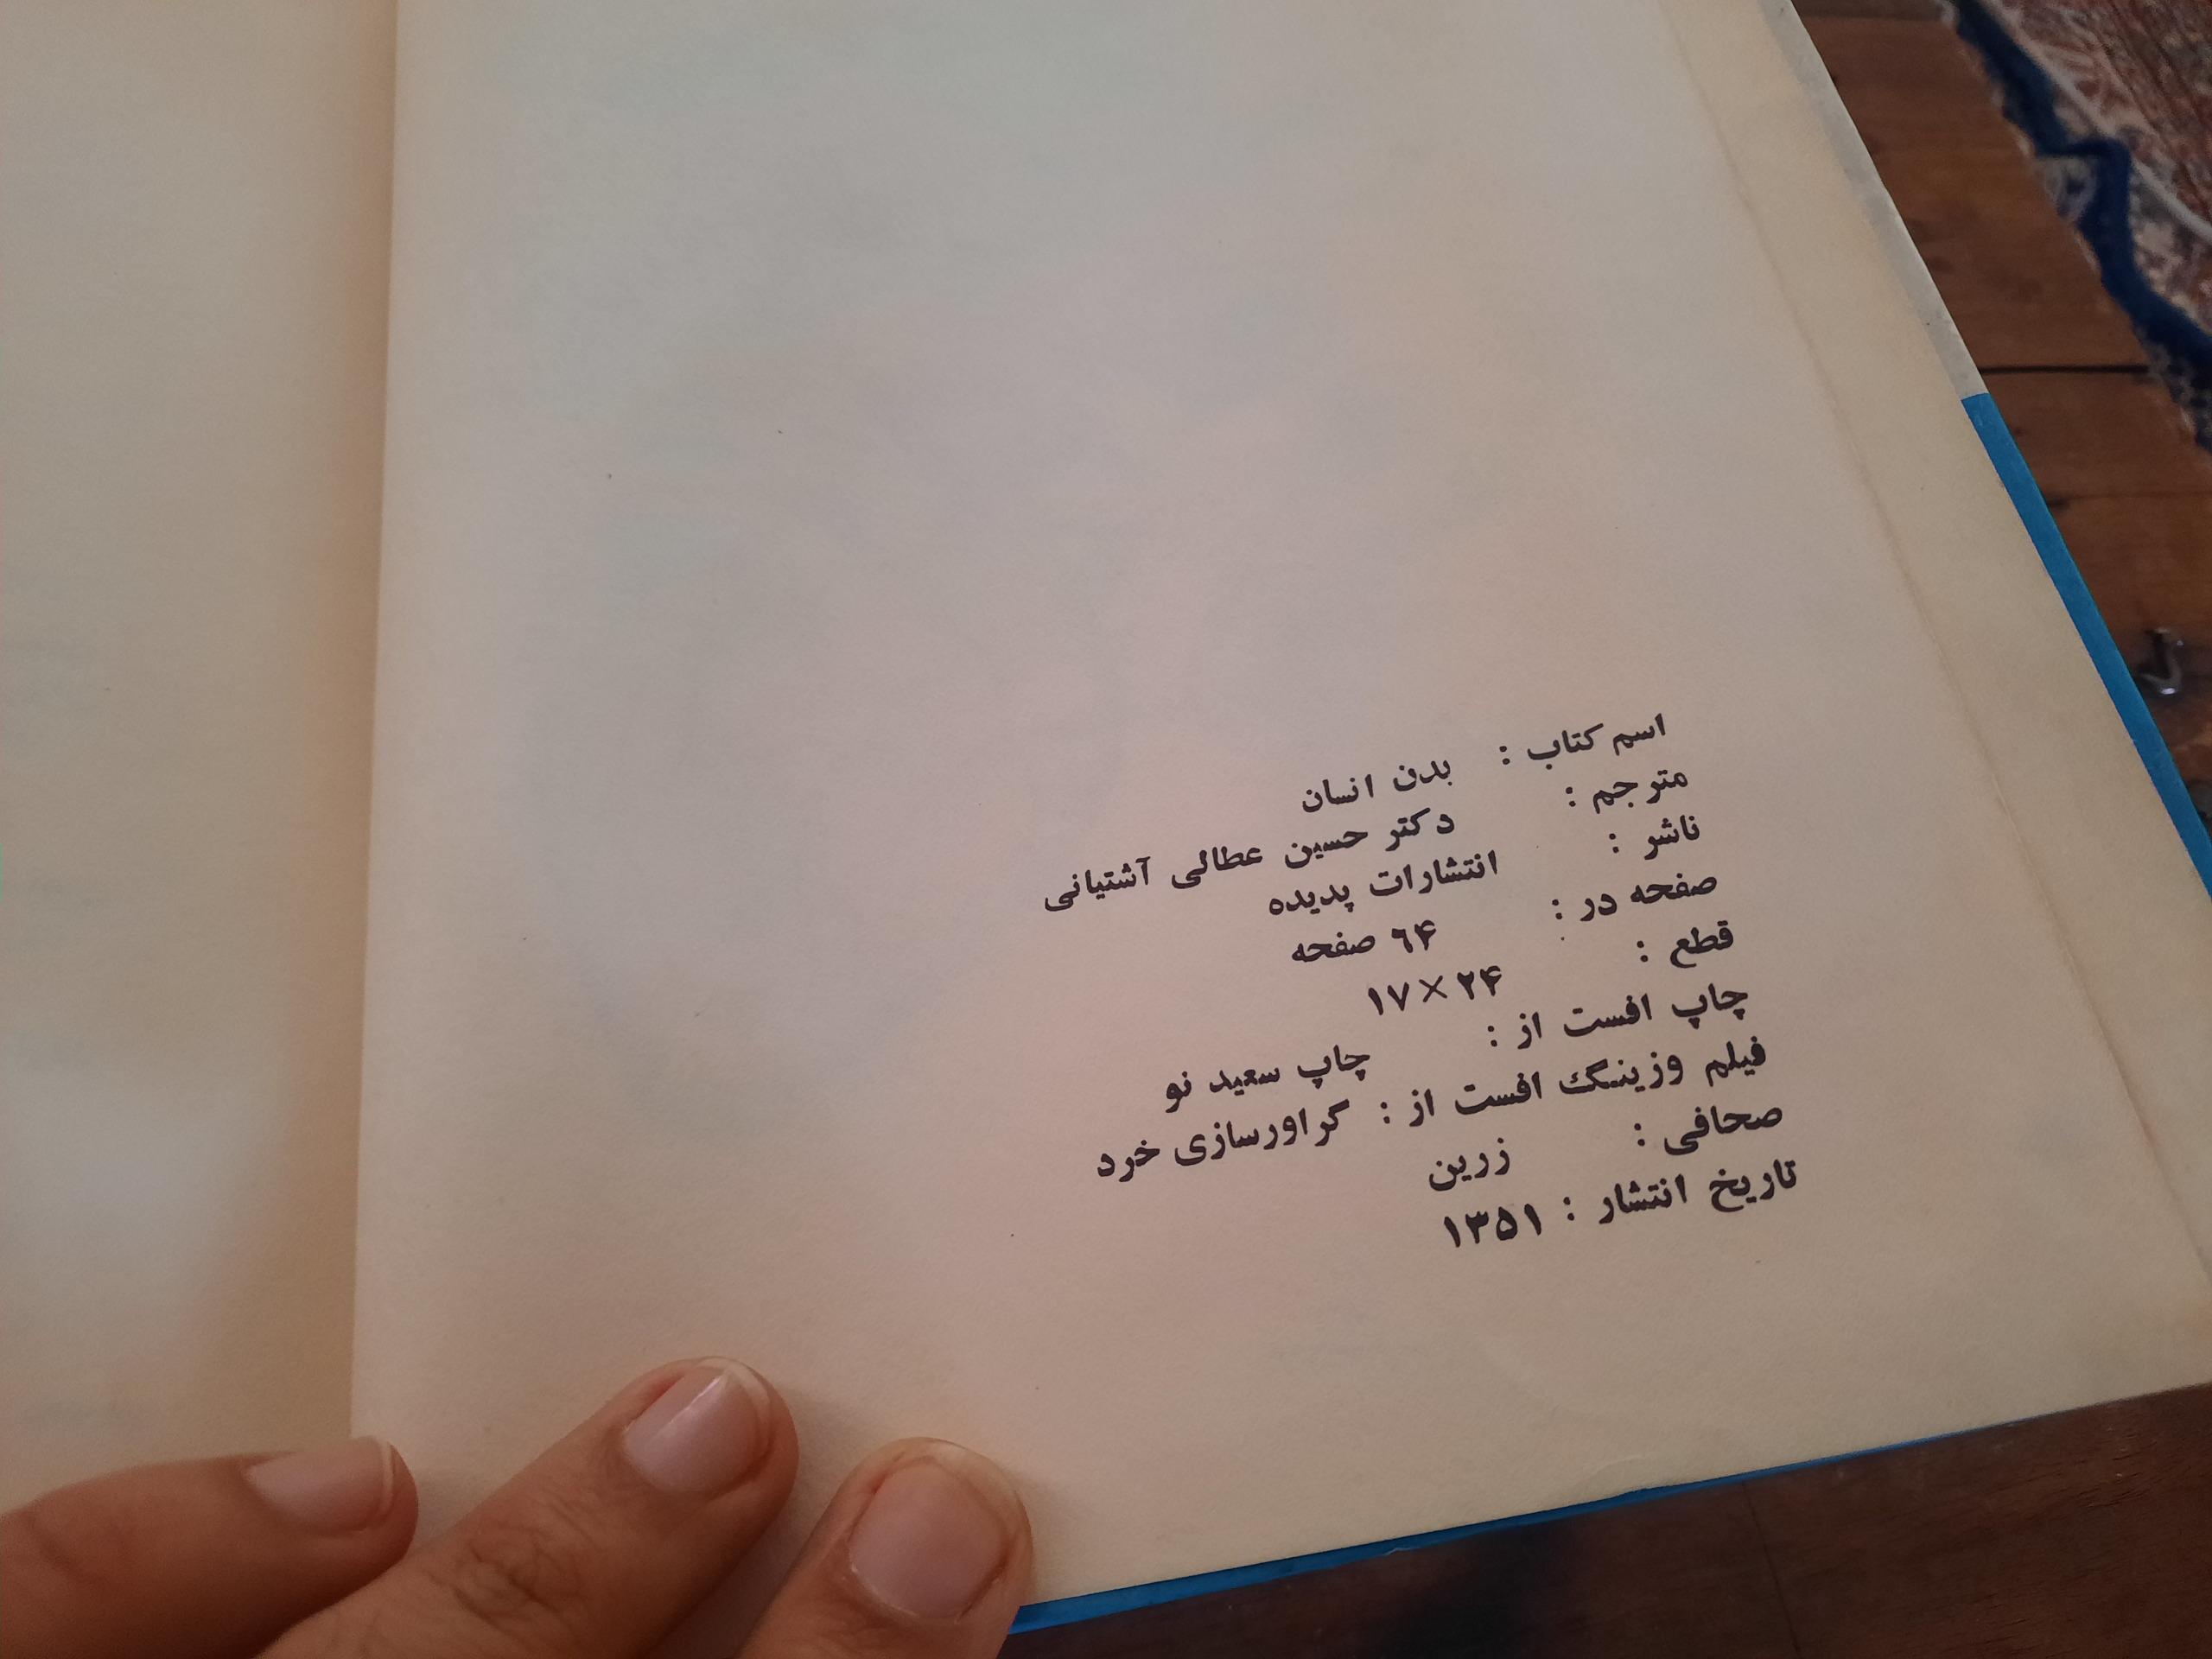 اسم کتاب : بدن انسان
مترجم : دکتر حسین عطالی آشتیانی
ناشر : انتشارات پدیده
صفحه در : ۶۴ صفحه
قطع : ۲۴×۱۷
چاپ افست از : چاپ سعید نو
فیلم وزینگ افست از : گراورسازی خرد
صحافی : زرین
تاریخ انتشار : ۱۳۵۱